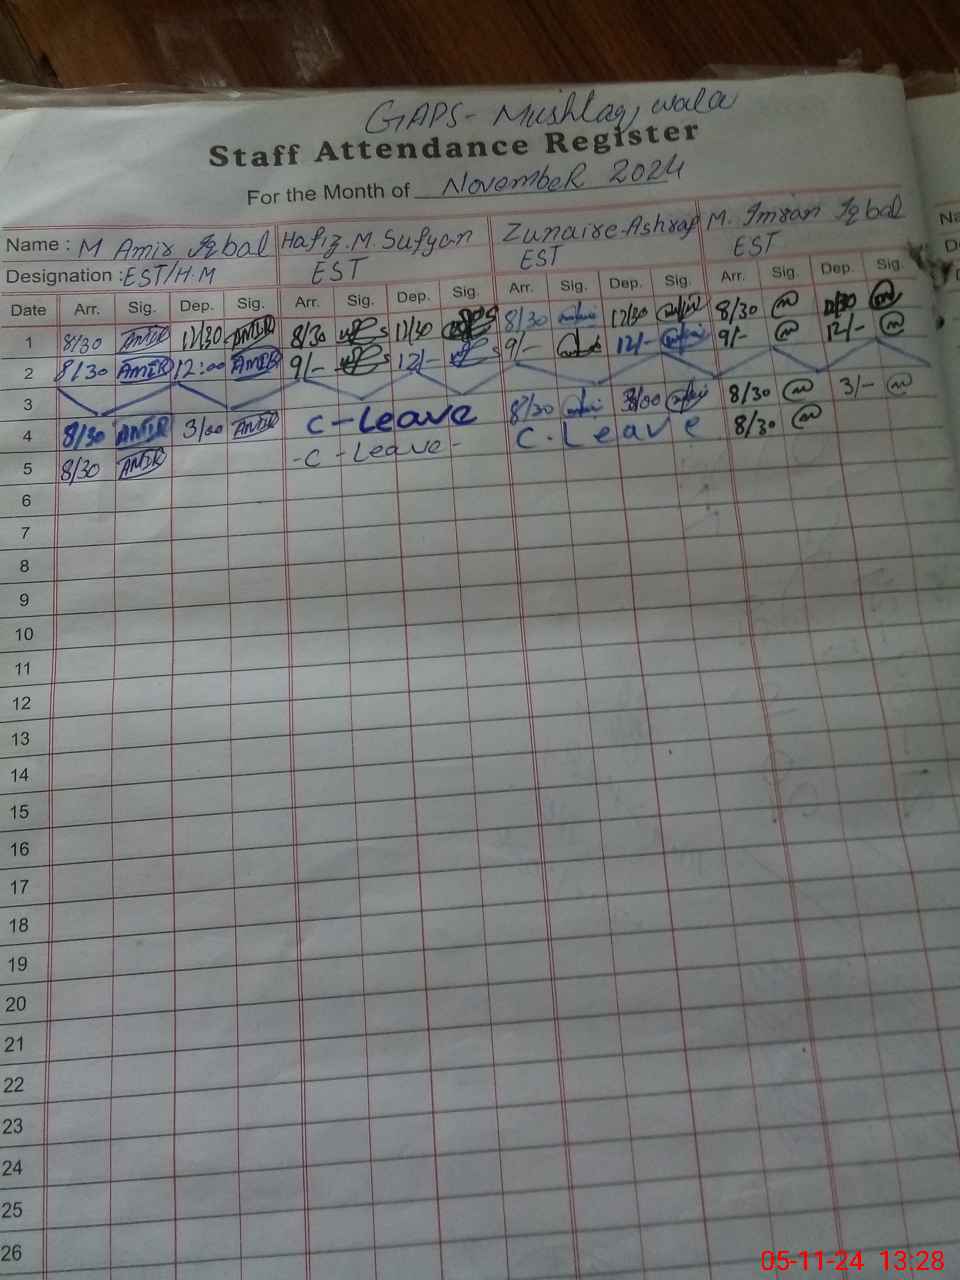 GAPS- Mushtaq wala
Staff Attendance Register
For the Month of November 2024
Name : M Amir Iqbal Hafiz. M. Sufyan Zunaire-Ashraf M. Imran Iqbal
Designation : EST/H.M EST EST EST
Date Arr. Sig. Dep. Sig. Arr. Sig. Dep. Sig. Arr. Sig. Dep. Sig. Arr. Sig. Dep. Sig.
1 8/30 AMIR 12/30 AMIR 8/30 12/30 8/30 12/30 8/30 12/30
2 8/30 AMIR 12:00 AMIR 9/- 12/- 9/- 12/- 9/- 12/-
3
4 8/30 AMIR 3/00 AMIR C-Leave 8/30 3/00 8/30 3/-
5 8/30 AMIR -C-Leave- C. Leave 8/30
6
7
8
9
10
11
12
13
14
15
16
17
18
19
20
21
22
23
24
25
26
Na
D
05-11-24 13:28